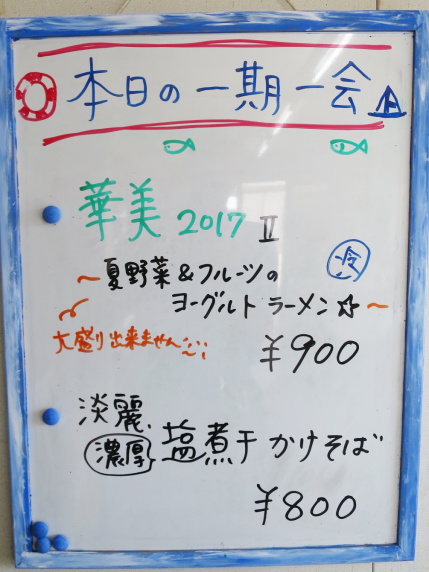 本日の一期一会
華美 2017 Ⅱ
冷
～夏野菜&フルーツの
ヨーグルト ラーメン☆～
大盛り出来ません
¥900
淡麗
濃厚 塩煮干かけそば
¥800